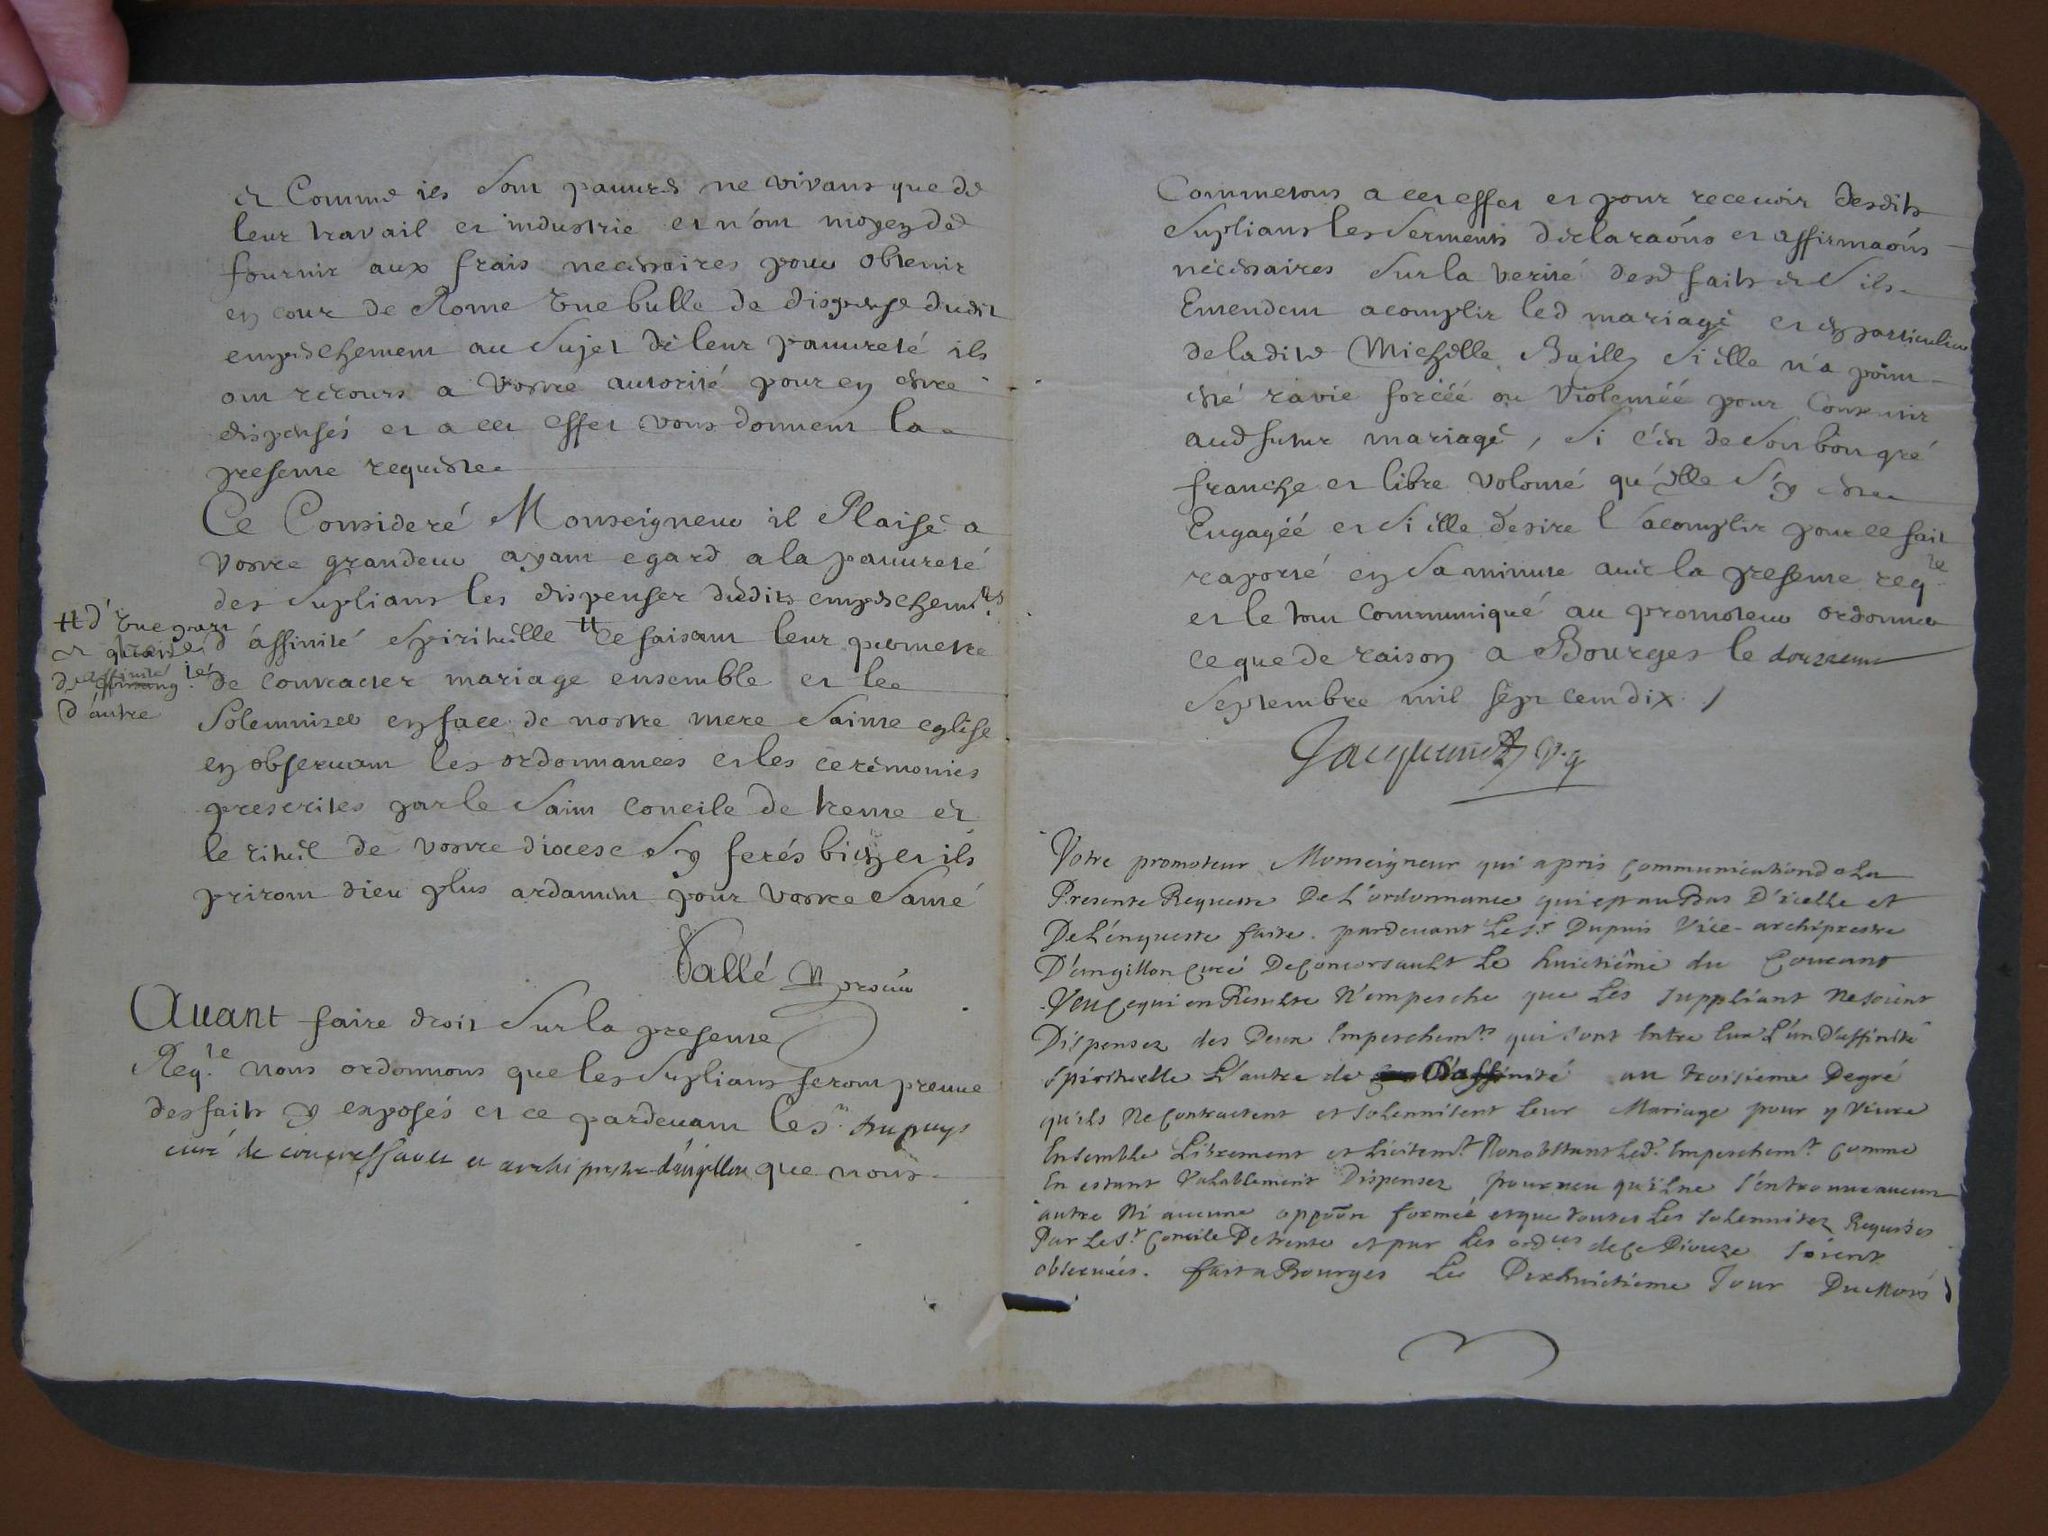 et Comme ils sont pauures ne vivans que de
leur travail et industrie et n'ont moyen de
fournir aux frais necessaires pour obtenir
en cour de Rome une bulle de dispense dudit
empeschement au sujet de leur pauureté ils
ont recours a vostre autorité pour en estre
dispensés et a cet effet vous donnent la
presente requeste
Ce Consideré Monseigneur il Plaise a
vostre grandeur ayant egard a la pauureté
des suplians les dispenser dudits empeschemts
# d'une part
et
d'affinité
d'autre
d'affinité spirituelle # ce faisant leur permettre
de contracter mariage ensemble et le
solemniser en face de nostre mere sainte eglise
en obseruant les ordonnances et les ceremonies
prescrites par le saint concile de trente et
le rituel de vostre diocese sy ferés bien et ils
priront dieu plus ardament pour vostre santé
Vallé procur
Auant faire droit sur la presente
Reqte nous ordonnons que les suplians feront preuue
des faits y exposés et ce pardeuant le sr dupuys
curé de concressault et archiprestre d'angillon que nous
Commetons a cet effet et pour receuoir desdits
suplians les serments declaraons et affirmaons
necessaires sur la verité desd faits et s'ils
Entendent acomplir led mariage et en particulier
de ladite Michelle Bailly si elle n'a point
esté ravie forcéé ou violentéé pour consentir
aud futur mariage, si c'est de son bon gré
franche et libre volonté qu'elle s'y est
Engagéé et si elle desire l'acomplir pour ce fait
raporté en sa minute auec la presente reqte
et le tout communiqué au promoteur ordonner
ce que de raison a Bourges le douzieme
septembre mil sept cent dix /
Jacquemet v.g
Votre promoteur Monseigneur qui a pris communication de La
Presente Requeste De L'ordonnance qui est au Bas D'icelle et
De L'enqueste faite pardeuant Le Sr Dupuis Vice-archiprestre
D'angillon Curé De Concorsault Le huictiéme du Courant
Veu ce qui en Resulte N'empesche que Les suppliant ne soient
Dispensez des Deux Empeschemts qui sont Entre Eux L'un D'affinité
spirituelle L'autre de D'affinité au troisieme Degré
qu'ils ne Contractent et solennisent Leur Mariage pour y Viure
Ensemble Librement et Licitemt Nonobstant Led. Empeschemt Comme
En estant Valablement Dispensez pourueu qu'il ne s'en trouue aucun
autre Ni aucune oppoon forméé et que toutes Les solennitez Requises
Par Le St Concile De trente et par Les ordces de Ce Dioceze soient
obseruées. fait a Bourges Le Dixhuictieme Jour Du Mois